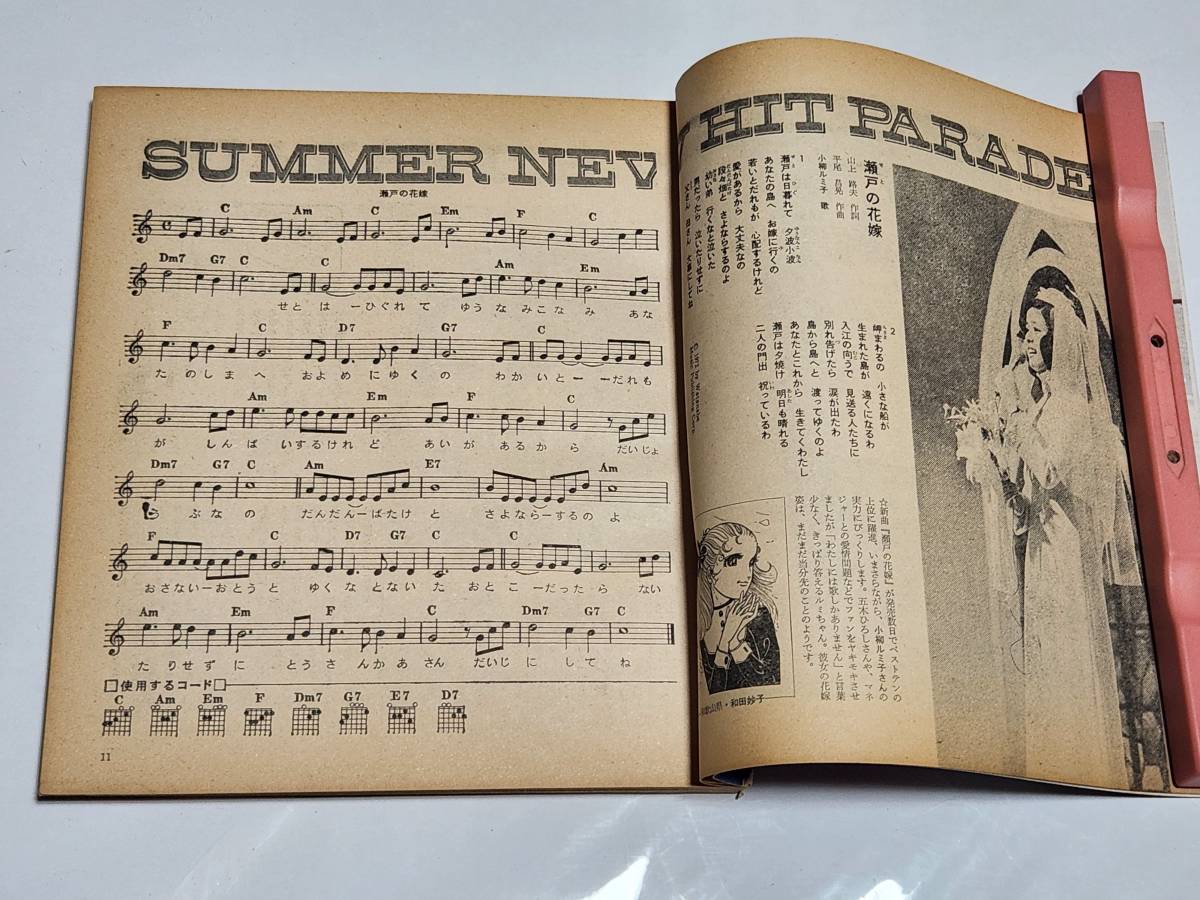 SUMMER NEW
瀬戸の花嫁
C Am C Em F C
Dm7 G7 C C Am Em
せとは ーひぐれて ゆうなみこなみ あな
F C D7 G7 C
たのしまへ およめにゆくの わかいとーーだれも
Am Em F C
が しんぱ いするけれど あいが あるから だいじょ
Dm7 G7 C Am E7 Am
うぶなの だんだんーばたけと さよならーするのよ
F C D7 G7 C
おさないーおとうと ゆくなとないた おとこーだったら ない
Am Em F C Dm7 G7 C
たりせずに とうさんかあさん だいじにしてね
使用するコード
C Am Em F Dm7 G7 E7 D7
11
T HIT PARADE
瀬戸の花嫁
山上 路夫 作詞
平尾 昌晃 作曲
小柳ルミ子 歌
1
瀬戸は日暮れて 夕波小波
あなたの島へ お嫁に行くの
若いとだれもが 心配するけれど
愛があるから 大丈夫なの
段々畑と さよならするのよ
幼い弟 行くなと泣いた
男だったら 泣いたりせずに
父さん 母さん 大事にしてね
2
岬まわるの 小さな船が
生まれた島が 遠くになるわ
入江の向うで 見送る人たちに
別れ告げたら 涙が出たわ
島から島へと 渡ってゆくのよ
あなたとこれから 生きてくわたし
瀬戸は夕焼け 明日も晴れる
二人の門出 祝っているわ
☆新曲『瀬戸の花嫁』が発売数日でベストテンの
上位に躍進、いまさらながら、小柳ルミ子さんの
実力にびっくりします。五木ひろしさんや、マネ
ジャーとの愛情問題などでファンをヤキモキさせ
ましたが「わたしには歌しかありません」と言葉
少なく、きっぱり答えるルミちゃん。彼女の花嫁
姿は、まだまだ当分先のことのようです。
・和田妙子